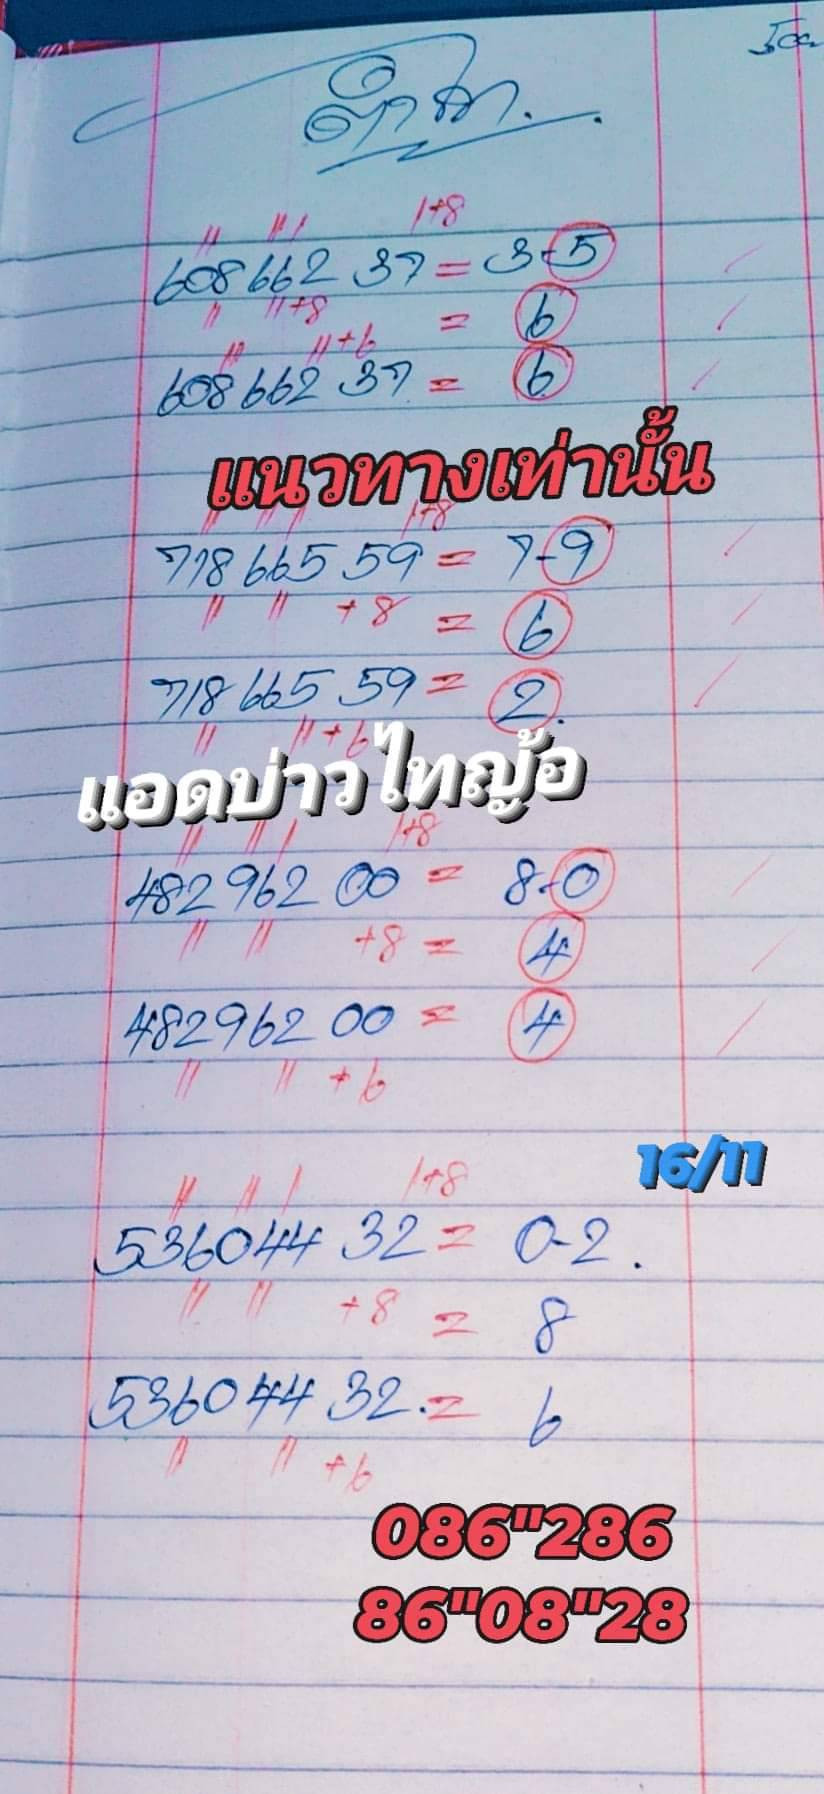 1+8
608662 37 = 3-5
+8 = 6
+6
608662 37 = 6
แนวทางเท่านั้น
1+8
718665 59 = 7-9
+8 = 6
718665 59 = 2.
+6
แอดบ่าวไทญ้อ
1+8
482962 00 = 8-0
+8 = 4
482962 00 = 4
+6
16/11
1+8
536044 32 = 0-2.
+8 = 8
536044 32. = 6
+6
086"286
86"08"28